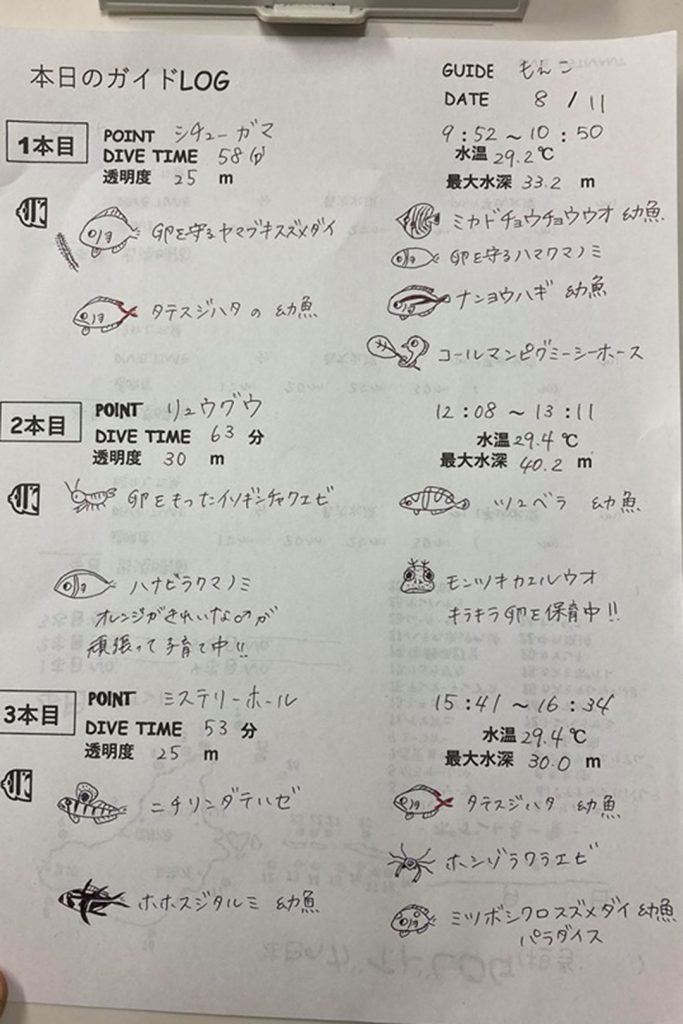 本日のガイドLOG
GUIDE もんこ
DATE 8 / 11
1本目
POINT シチューガマ
9:52 ～ 10:50
DIVE TIME 58分
水温 29.2℃
透明度 25 m
最大水深 33.2 m
卵を守るヤマブキスズメダイ
ミカドチョウチョウウオ 幼魚
卵を守るハマクマノミ
タテスジハタの 幼魚
ナンヨウハギ 幼魚
コールマンピグミーシーホース
2本目
POINT リュウグウ
12:08 ～ 13:11
DIVE TIME 63 分
水温 29.4℃
透明度 30 m
最大水深 40.2 m
卵をもったイソギンチャクエビ
ツユベラ 幼魚
ハナビラクマノミ
オレンジがきれいな♂が
頑張って子育て中!!
モンツキカエルウオ
キラキラ卵を保育中!!
3本目
POINT ミステリーホール
15:41 ～ 16:34
DIVE TIME 53 分
水温 29.4℃
透明度 25 m
最大水深 30.0 m
ニチリンダテハゼ
タテスジハタ 幼魚
ホシゾラワラエビ
ホホスジタルミ 幼魚
ミツボシクロスズメダイ 幼魚
パラダイス